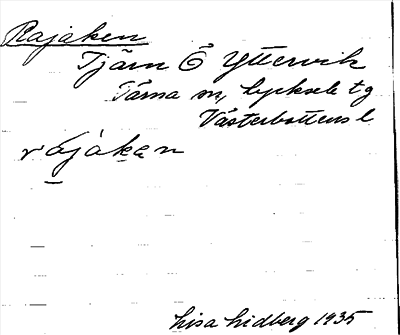 Rajaken
Tjärn Ö Yttervik
Tärna sn, Lycksele tg
Västerbottens l
rájakan
Lisa Lidberg 1935